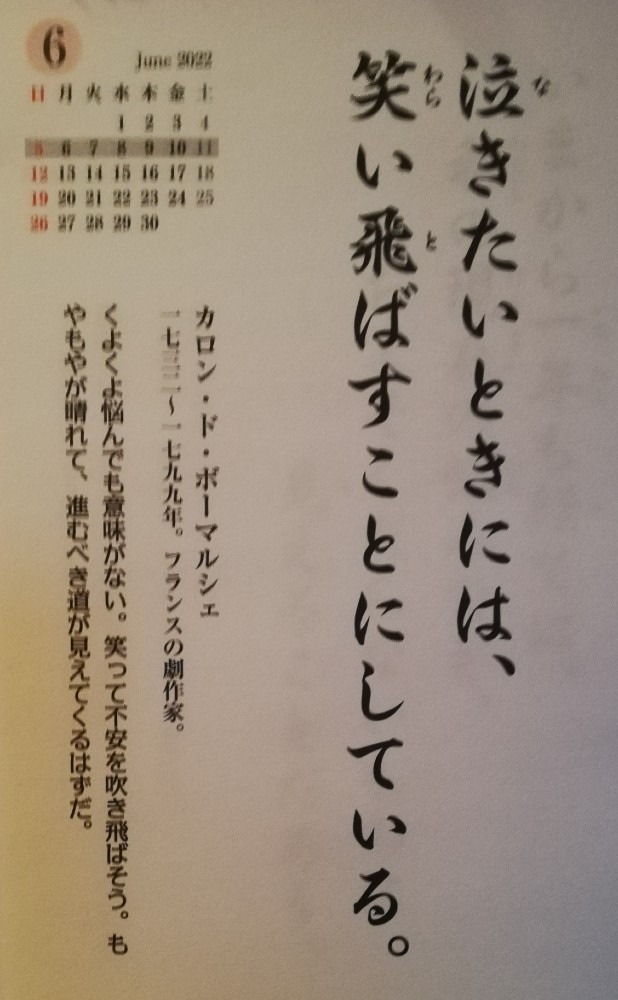 泣きたいときには、
笑い飛ばすことにしている。
な
わら
と
6
June 2022
日 月 火 水 木 金 土
1 2 3 4
5 6 7 8 9 10 11
12 13 14 15 16 17 18
19 20 21 22 23 24 25
26 27 28 29 30
カロン・ド・ボーマルシェ
一七三二〜一七九九年。フランスの劇作家。
くよくよ悩んでも意味がない。笑って不安を吹き飛ばそう。も
やもやが晴れて、進むべき道が見えてくるはずだ。